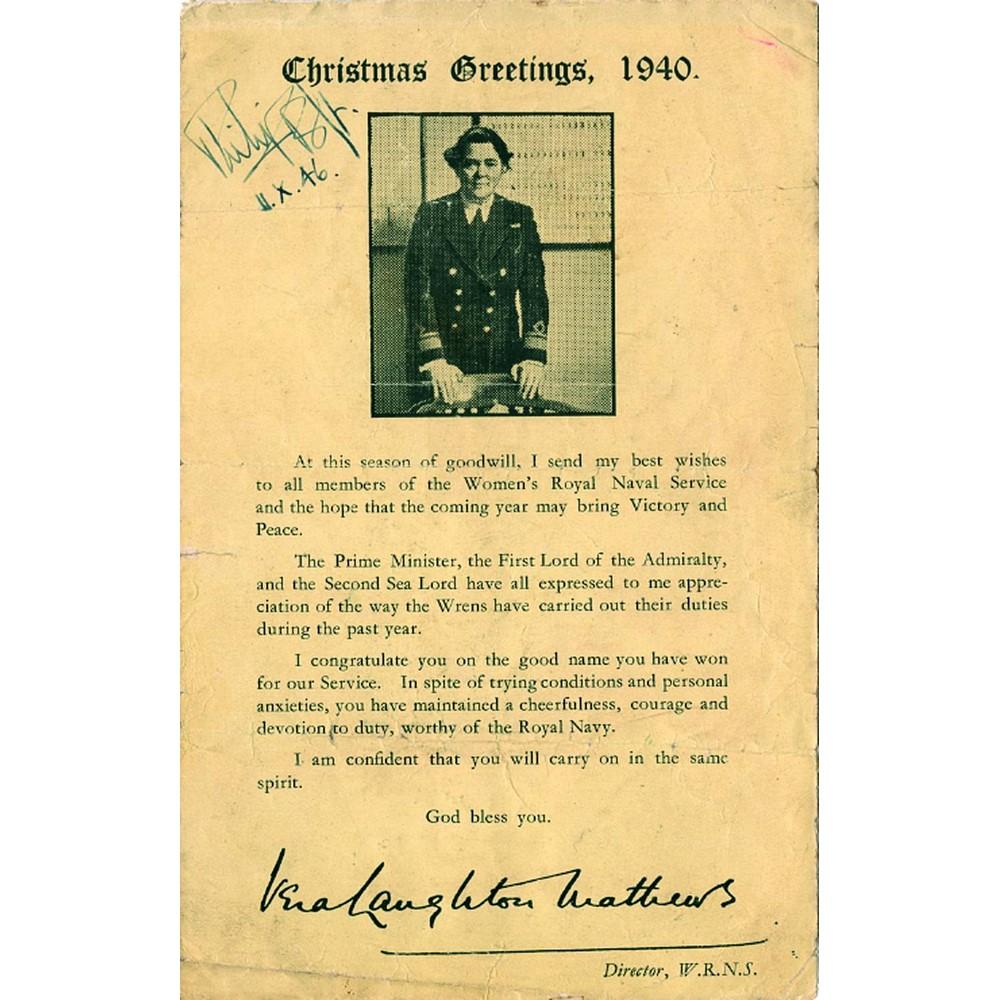 Christmas Greetings, 1940.
Philip
11.X.46.
At this season of goodwill, I send my best wishes
to all members of the Women's Royal Naval Service
and the hope that the coming year may bring Victory and
Peace.
The Prime Minister, the First Lord of the Admiralty,
and the Second Sea Lord have all expressed to me appre-
ciation of the way the Wrens have carried out their duties
during the past year.
I congratulate you on the good name you have won
for our Service. In spite of trying conditions and personal
anxieties, you have maintained a cheerfulness, courage and
devotion to duty, worthy of the Royal Navy.
I am confident that you will carry on in the same
spirit.
God bless you.
Vera Laughton Mathews
Director, W.R.N.S.